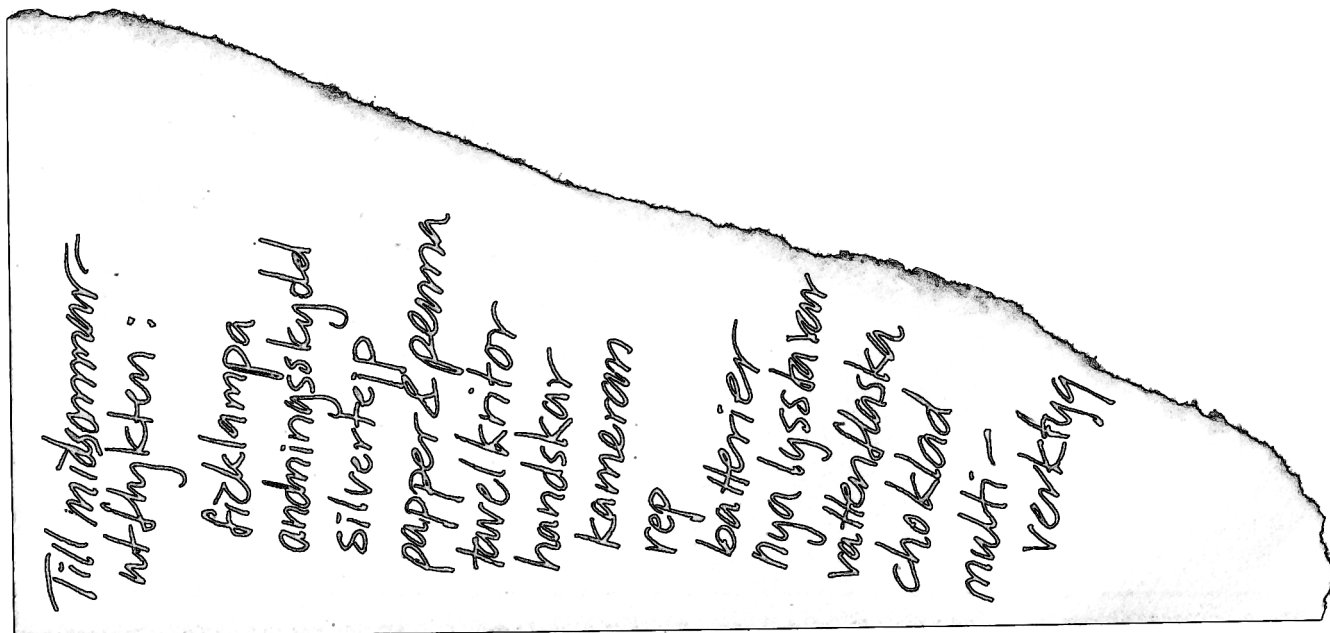 Till midsommar-
utflykten:
ficklampa
andningsskydd
silvertejp
papper & penna
tavelkritor
handskar
kameran
rep
batterier
nya lysstavar
vattenflaska
choklad
multi-
verktyg